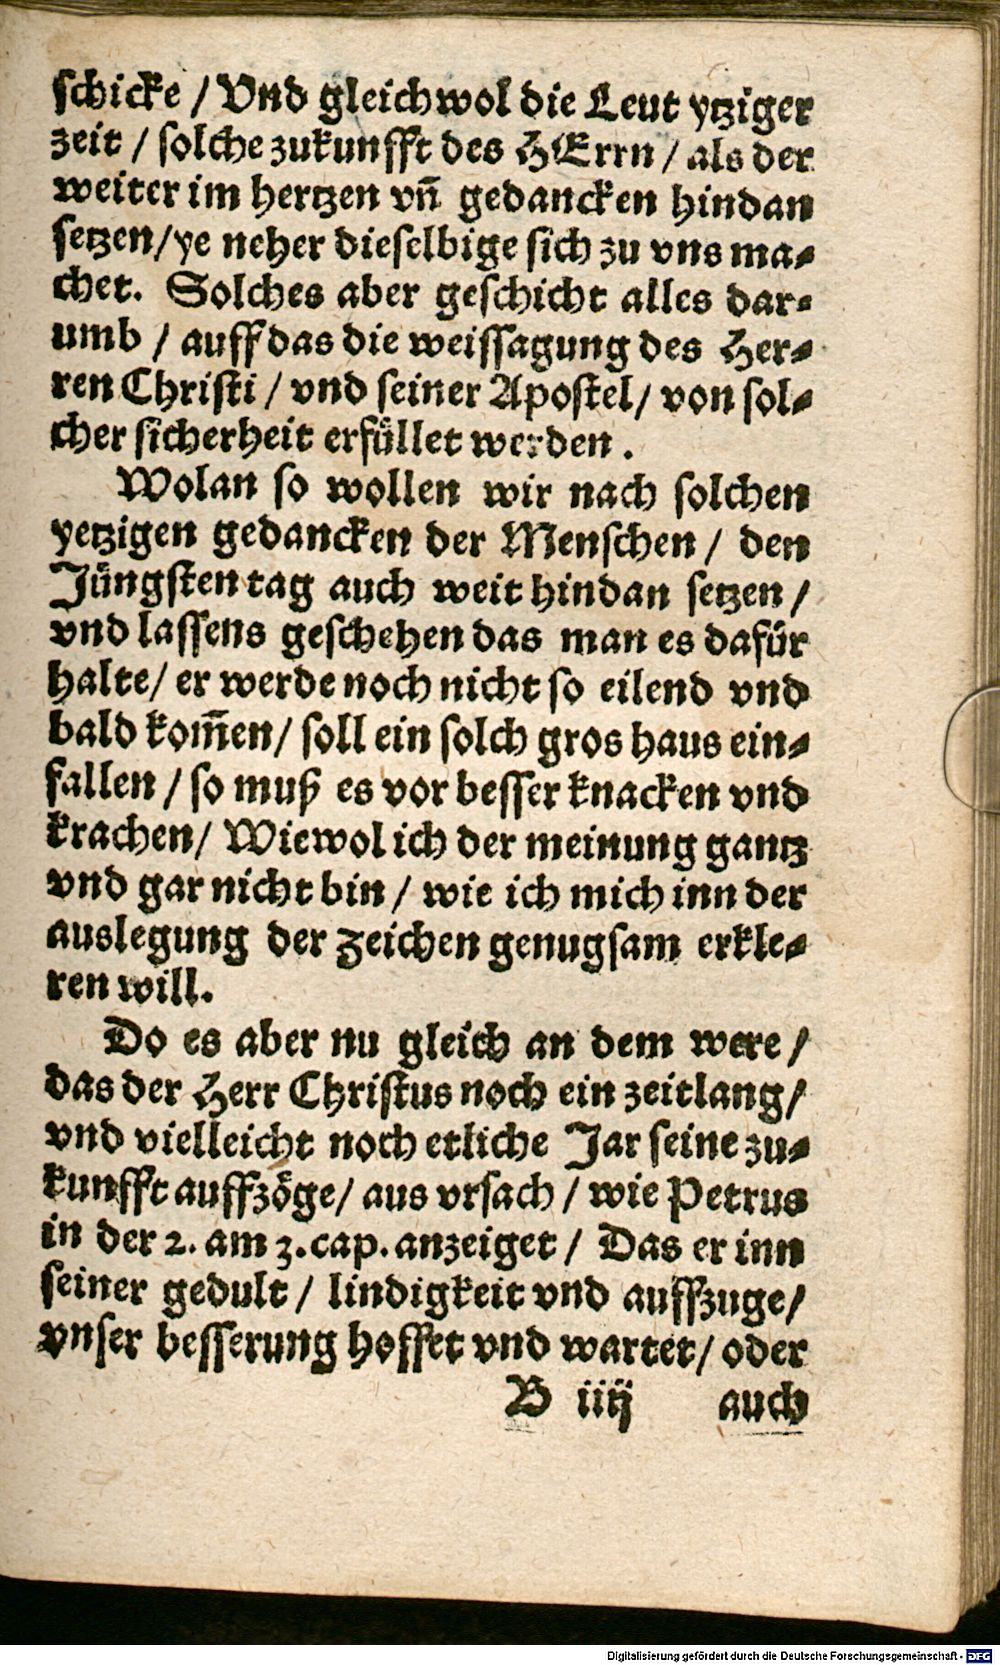 schicke / Vnd gleichwol die Leut ytziger
zeit / solche zukunfft des HErrn / als der
weiter im hertzen vñ gedancken hindan
setzen/ ye neher dieselbige sich zu vns ma⸗
chet. Solches aber geschicht alles dar⸗
umb / auff das die weissagung des Her⸗
ren Christi / vnd seiner Apostel/ von sol⸗
cher sicherheit erfüllet werden.
Wolan so wollen wir nach solchen
yetzigen gedancken der Menschen / den
Jüngsten tag auch weit hindan setzen /
vnd lassens geschehen das man es dafür
halte/ er werde noch nicht so eilend vnd
bald kom̃en/ soll ein solch gros haus ein⸗
fallen / so muß es vor besser knacken vnd
krachen/ Wiewol ich der meinung gantz
vnd gar nicht bin / wie ich mich inn der
auslegung der zeichen genugsam erkle⸗
ren will.
Do es aber nu gleich an dem were /
das der Herr Christus noch ein zeitlang/
vnd vielleicht noch etliche Jar seine zu⸗
kunfft auffzöge/ aus vrsach / wie Petrus
in der 2. am 3. cap. anzeiget / Das er inn
seiner gedult / lindigkeit vnd auffzuge/
vnser besserung hoffet vnd wartet/ oder
B iiij auch
Digitalisierung gefördert durch die Deutsche Forschungsgemeinschaft - DFG